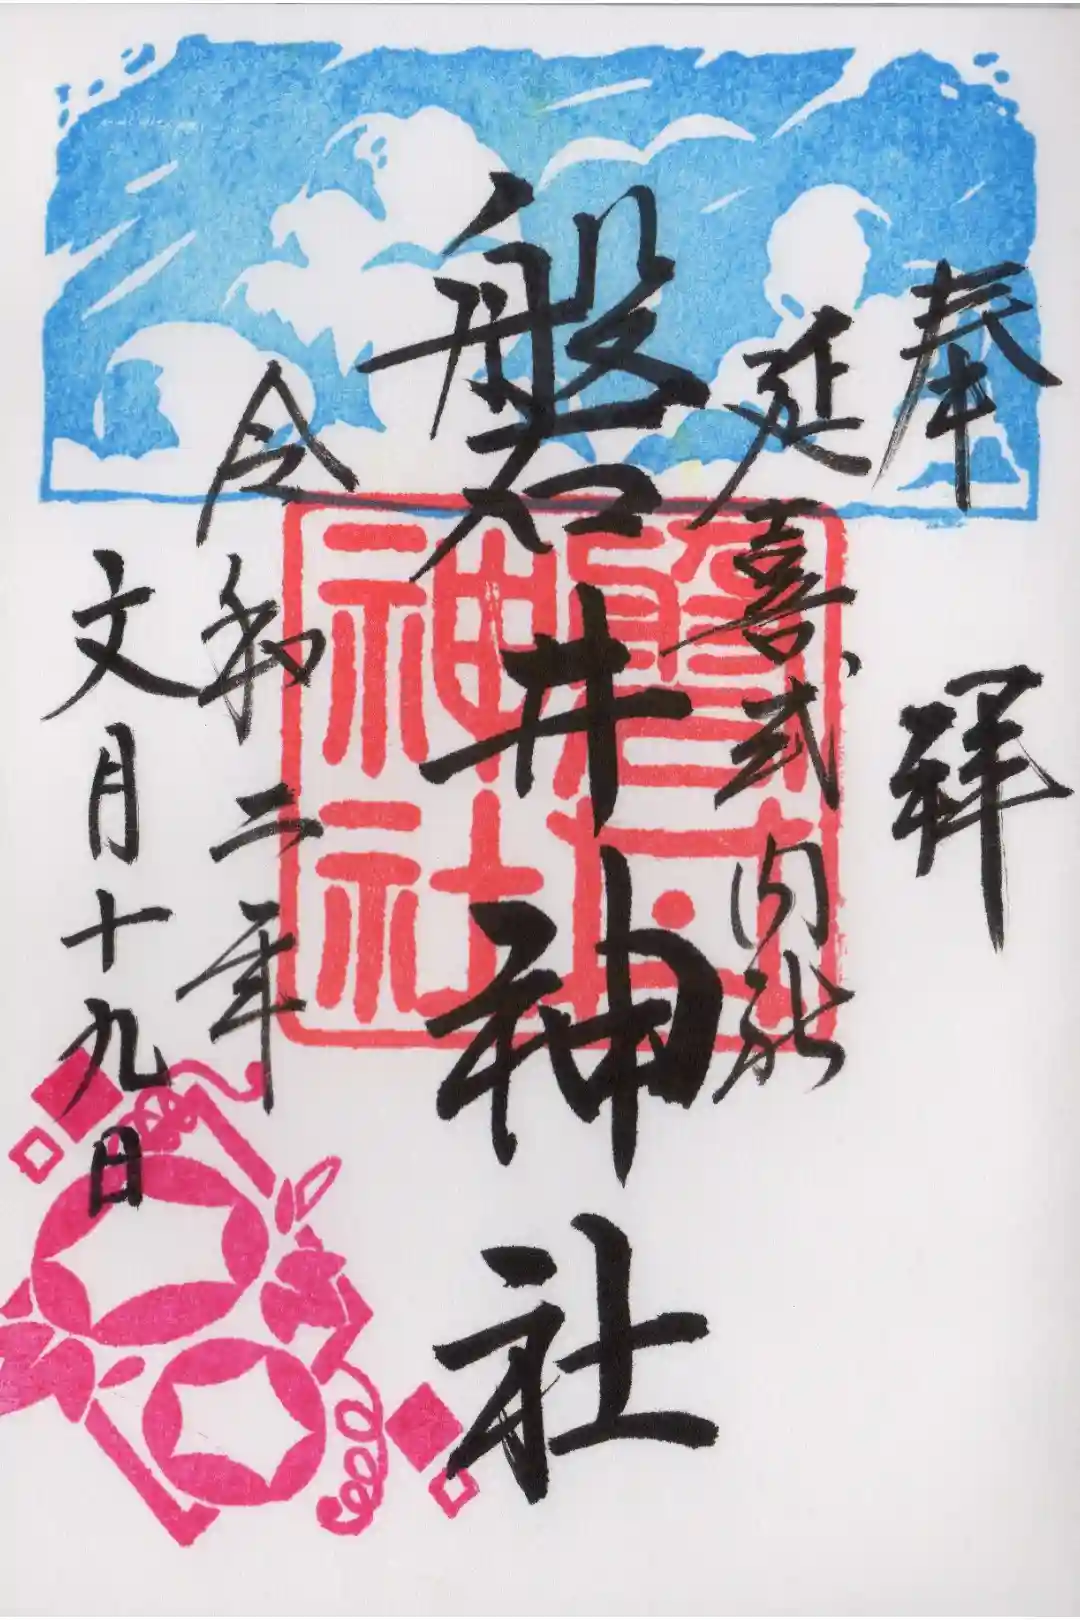 奉拜
延喜式内社
磐井神社
令和二年
文月十九日
磐井
神社